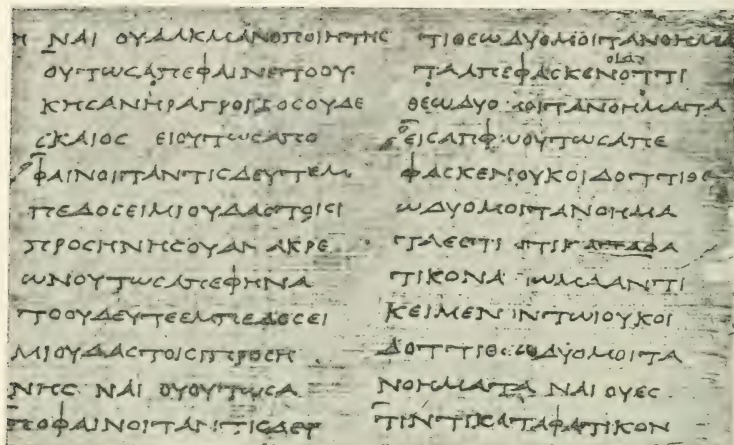 Η ΝΑΙ ΟΥΑΛΚΜΑΝΟΠΟΙΗΤΗϹ
ΟΥΤΩϹΑΠΕΦΑΙΝΕΤΟΟΥ
ΚΗϹΑΝΗΡΑΓΡΟΙΚΟϹΟΥΔΕ
ϹΚΑΙΟϹ ΕΙΟΥΤΩϹΑΠΟ
ΦΑΙΝΟΙΤΑΝΤΙϹΔΕΥΤΕΜ
ΠΕΔΟϹΕΙΜΙΟΥΔΑϹΤΟΙϹΙ
ΠΡΟϹΗΝΗϹΟΥΑΝΑΚΡΕ
ΩΝΟΥΤΩϹΑΠΕΦΗΝΑ
ΤΟΟΥΔΕΥΤΕΕΜΠΕΔΟϹΕΙ
ΜΙΟΥΔΑϹΤΟΙϹΠΡΟϹΗ
ΝΗϹ ΝΑΙ ΟΥΟΥΤΩϹΑ
ΠΟΦΑΙΝΟΙΤΑΝΤΙϹΔΕΥ
ΤΙΘΕΩΔΥΟΜΟΙΤΑΝΟΗΜΑ
ΤΑΑΠΕΦΑϹΚΕΝΟΤΤΙ
ΘΕΩΔΥΟΜΟΙΤΑΝΟΗΜΑΤΑ
ΕΙϹΑΠΦΩΟΥΤΩϹΑΠΕ
ΦΑϹΚΕΝΟΥΚΟΙΔΟΤΤΙΘΕ
ΩΔΥΟΜΟΙΤΑΝΟΗΜΑ
ΤΑΕϹΤΙ ΤΙΚΑΤΑΦΑ
ΤΙΚΟΝΑΞΙΩΜΑΑΝΤΙ
ΚΕΙΜΕΝΟΝΤΩΙΟΥΚΟΙ
ΔΟΤΤΙΘΕΩΔΥΟΜΟΙΤΑ
ΝΟΗΜΑΤΑ ΝΑΙ ΟΥΕϹ
ΤΙΝΤΙΚΑΤΑΦΑΤΙΚΟΝ